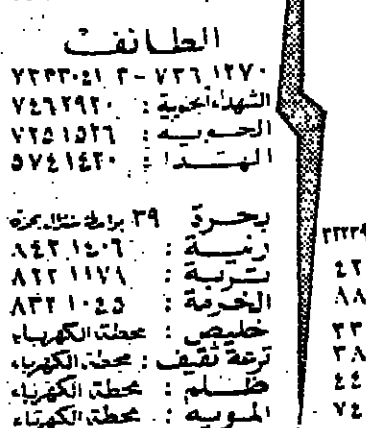 الطائف
٧٣٦١٢٧٠ - ٣ ٧٣٣٣٠٤١
الشهداء الجنوبية : ٧٤٦٢٩٢٠
الحويه : ٧٢٥١٥٢٦
الهدا : ٥٧٤١٤٢٠
بحرة ٣٩ بواسطة سنترال بحرة
رنية : ٨٤٣١٤٠٦
تربة : ٨٢٢١١٧٨
الخرمة : ٨٣٢١٠٤٥
خليص : محطة الكهرباء
ترعة ثقيف : محطة الكهرباء
ظلم : محطة الكهرباء
المويه : محطة الكهرباء